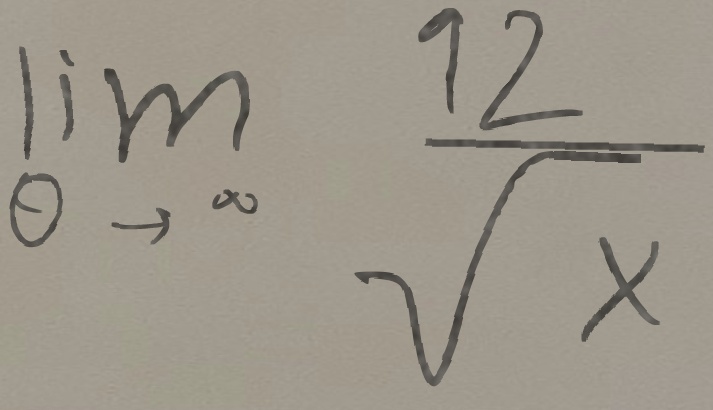 lim θ → ∞ 12 / √x